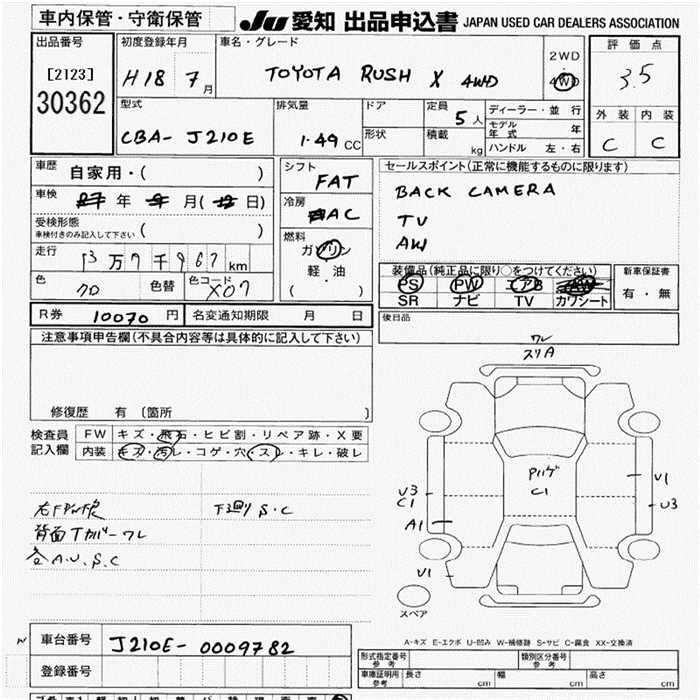 車内保管・守衛保管
JU 愛知 出品申込書 JAPAN USED CAR DEALERS ASSOCIATION
出品番号
[2123]
30362
初度登録年月
H18 7月
車名・グレード
TOYOTA RUSH X 4WD
2WD
4WD
評価点
3.5
外装 内装
C C
型式
CBA- J210E
排気量
1.49 CC
ドア
形状
定員
5人
積載
kg
ディーラー・並行
モデル年式 年
ハンドル 左・右
車歴
自家用・( )
車検
年 月( 日)
受検形態
車検付きのみ記入して下さい ( )
走行
13万7千967km
色
クロ
色替
色コード
X07
シフト
FAT
冷房
AC
燃料
ガソリン
軽・油
( )
セールスポイント(正常に機能するものに限ります)
BACK CAMERA
TV
AW
装備品(純正品に限り○をつけてください)
PS PW エアB AW
SR ナビ TV カワシート
新車保証書
有・無
R券 10070 円
名変通知期限 月 日
後日品
注意事項申告欄(不具合内容等は具体的に記入して下さい)
修復歴 有 〔箇所 〕
検査員
記入欄
FW キズ・飛石・ヒビ割・リペア跡・X要
内装 キズ・汚レ・コゲ・穴・スレ・キレ・破レ
下廻り S・C
背面Tカバーワレ
各A.U.S.C
ワレ
スリA
C1
U3
C1
A1
U1
V1
U3
スペア
A-キズ E-エクボ U-凹み W-補修跡 S-サビ C-腐食 XX-交換済
車台番号
J210E- 0009782
登録番号
形式指定番号
参考
類別区分番号
参考
車庫証明用
参考
長さ cm 幅 cm 高さ cm